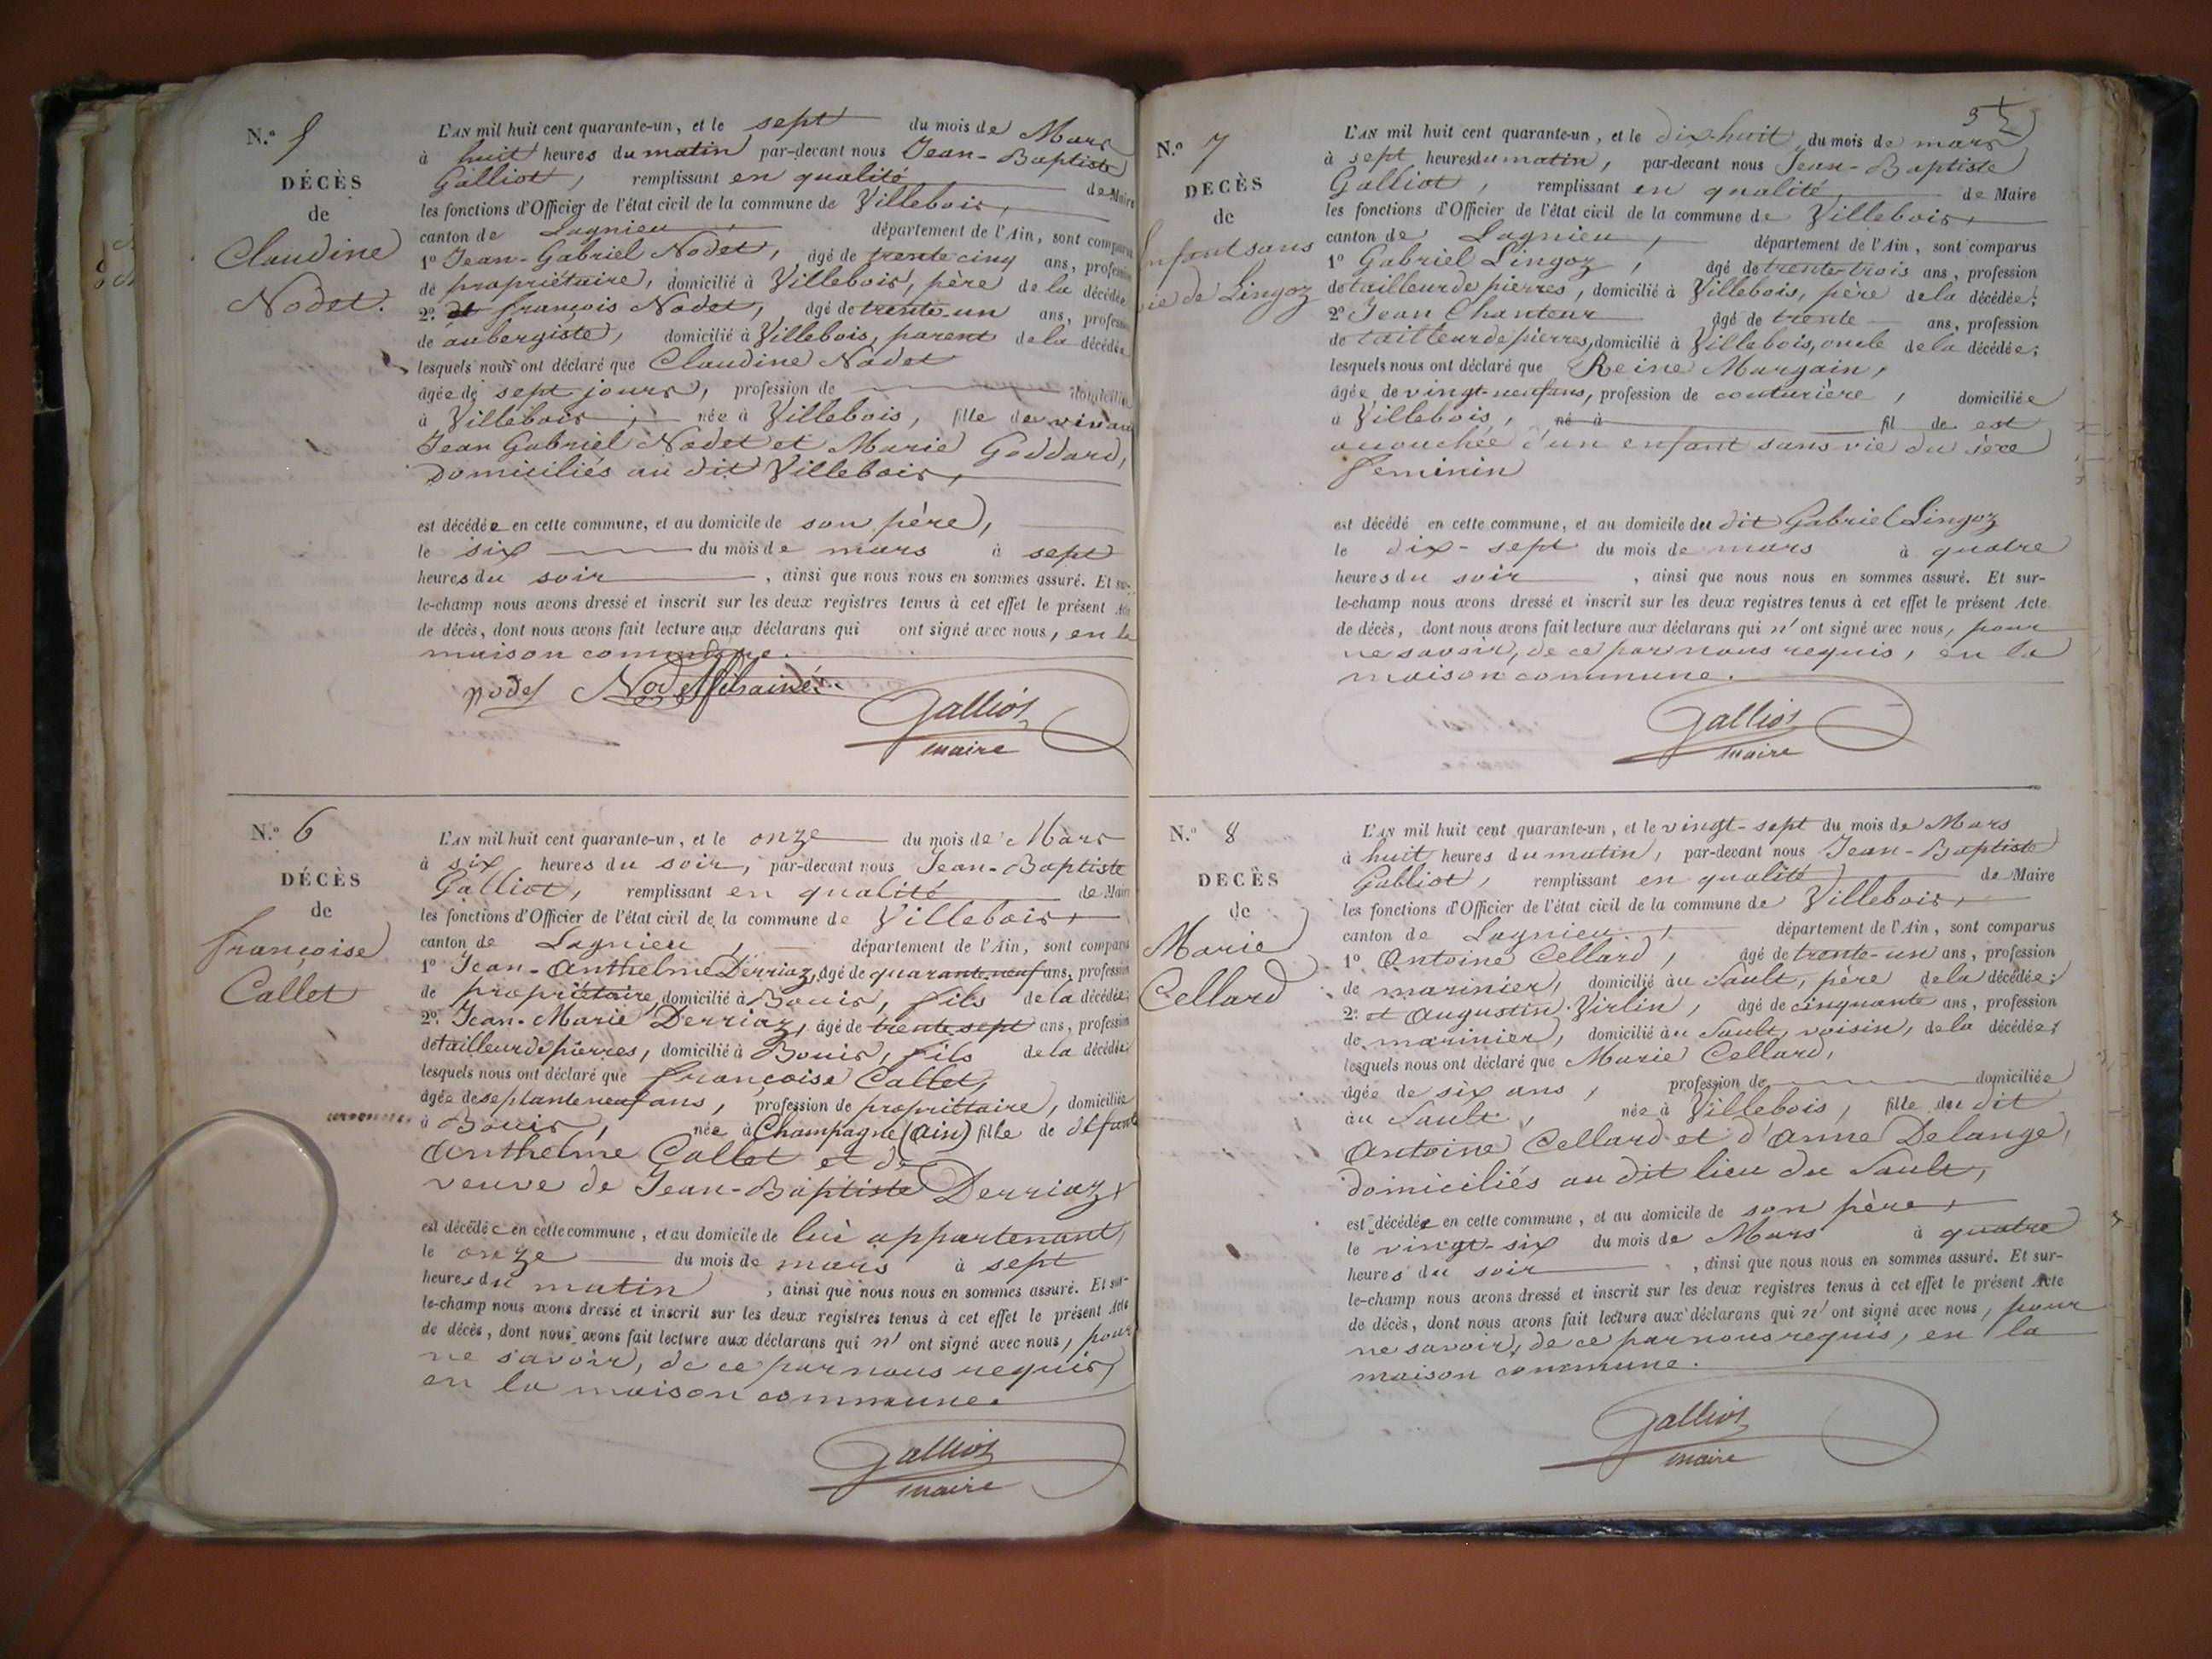 N.o 5
DÉCÈS
de
Claudine
Nodet.
L'AN mil huit cent quarante-un, et le sept du mois de Mars
à huit heures du matin par-devant nous Jean-Baptiste
Galliot, remplissant en qualité de Maire
les fonctions d'Officier de l'état civil de la commune de Villebois,
canton de Lagnieu, département de l'Ain, sont comparus
1o Jean-Gabriel Nodet, âgé de trente cinq ans, profession
de propriétaire, domicilié à Villebois, père de la décédée
2o et françois Nodet, âgé de trente-un ans, profession
de aubergiste, domicilié à Villebois, parent de la décédée
lesquels nous ont déclaré que Claudine Nodet
âgée de sept jours, profession de domiciliée
à Villebois, née à Villebois, fille de
Jean Gabriel Nodet et Marie Goddard,
Domiciliés au dit Villebois,
est décédée en cette commune, et au domicile de son père,
le six du mois de mars à sept
heures du soir, ainsi que nous nous en sommes assuré. Et sur-
le-champ nous avons dressé et inscrit sur les deux registres tenus à cet effet le présent Acte
de décès, dont nous avons fait lecture aux déclarans qui ont signé avec nous, en la
maison commune.
nodet Nodet
Galliot
maire
N.o 6
DÉCÈS
de
françoise
Callet
L'AN mil huit cent quarante-un, et le onze du mois de Mars
à six heures du soir, par-devant nous Jean-Baptiste
Galliot, remplissant en qualité de Maire
les fonctions d'Officier de l'état civil de la commune de Villebois,
canton de Lagnieu, département de l'Ain, sont comparus
1o Jean-Anthelme Derriaz, âgé de quarante-neuf ans, profession
de propriétaire, domicilié à Bouis, fils de la décédée;
2o. Jean-Marie Derriaz, âgé de trente sept ans, profession
de tailleur de pierres, domicilié à Bouis, fils de la décédée
lesquels nous ont déclaré que françoise Callet,
âgée de septante neuf ans, profession de propriettaire, domiciliée
à Bouis, née à Champagne (Ain) fille de défunts
Anthelme Callet et de
veuve de Jean-Baptiste Derriaz,
est décédée en cette commune, et au domicile de lui appartenant,
le onze du mois de mars à sept
heures du matin, ainsi que nous nous en sommes assuré. Et sur-
le-champ nous avons dressé et inscrit sur les deux registres tenus à cet effet le présent Acte
de décès, dont nous avons fait lecture aux déclarans qui n'ont signé avec nous, pour
ne savoir, de ce par nous requis,
en la maison commune.
Galliot
maire
5
N.o 7
DECÈS
de
Enfant sans
vie de Lingoz
L'AN mil huit cent quarante-un, et le dix-huit du mois de mars
à sept heures du matin, par-devant nous Jean-Baptiste
Galliot, remplissant en qualité de Maire
les fonctions d'Officier de l'état civil de la commune de Villebois,
canton de Lagnieu, département de l'Ain, sont comparus
1o Gabriel Lingoz, âgé de trente-trois ans, profession
de tailleur de pierres, domicilié à Villebois, père de la décédée;
2o Jean Chanteur âgé de trente ans, profession
de tailleur de pierres, domicilié à Villebois, oncle de la décédée;
lesquels nous ont déclaré que Reine Margain,
âgée de vingt-neuf ans, profession de couturière, domiciliée
à Villebois, né à fil de est
accouchée d'un enfant sans vie du sèxe
feminin
est décédé en cette commune, et au domicile du dit Gabriel Lingoz
le dix-sept du mois de mars à quatre
heures du soir, ainsi que nous nous en sommes assuré. Et sur-
le-champ nous avons dressé et inscrit sur les deux registres tenus à cet effet le présent Acte
de décès, dont nous avons fait lecture aux déclarans qui n'ont signé avec nous, pour
ne savoir, de ce par nous requis, en la
maison commune.
Galliot
maire
N.o 8
DECÈS
de
Marie
Cellard
L'AN mil huit cent quarante-un, et le vingt-sept du mois de Mars
à huit heures du matin, par-devant nous Jean-Baptiste
Galliot, remplissant en qualité de Maire
les fonctions d'Officier de l'état civil de la commune de Villebois,
canton de Lagnieu, département de l'Ain, sont comparus
1o Antoine Cellard, âgé de trente-un ans, profession
de marinier, domicilié au Sault, père de la décédée;
2o et Augustin Virlin, âgé de cinquante ans, profession
de marinier, domicilié au Sault, voisin, de la décédée;
lesquels nous ont déclaré que Marie Cellard,
âgée de six ans, profession de domiciliée
au Sault, née à Villebois, fille du dit
Antoine Cellard et d'Anne Delange,
domiciliés au dit lieu du Sault,
est décédée en cette commune, et au domicile de son père,
le vingt-six du mois de Mars à quatre
heures du soir, ainsi que nous nous en sommes assuré. Et sur-
le-champ nous avons dressé et inscrit sur les deux registres tenus à cet effet le présent Acte
de décès, dont nous avons fait lecture aux déclarans qui n'ont signé avec nous, pour
ne savoir, de ce par nous requis, en la
maison commune.
Galliot
maire